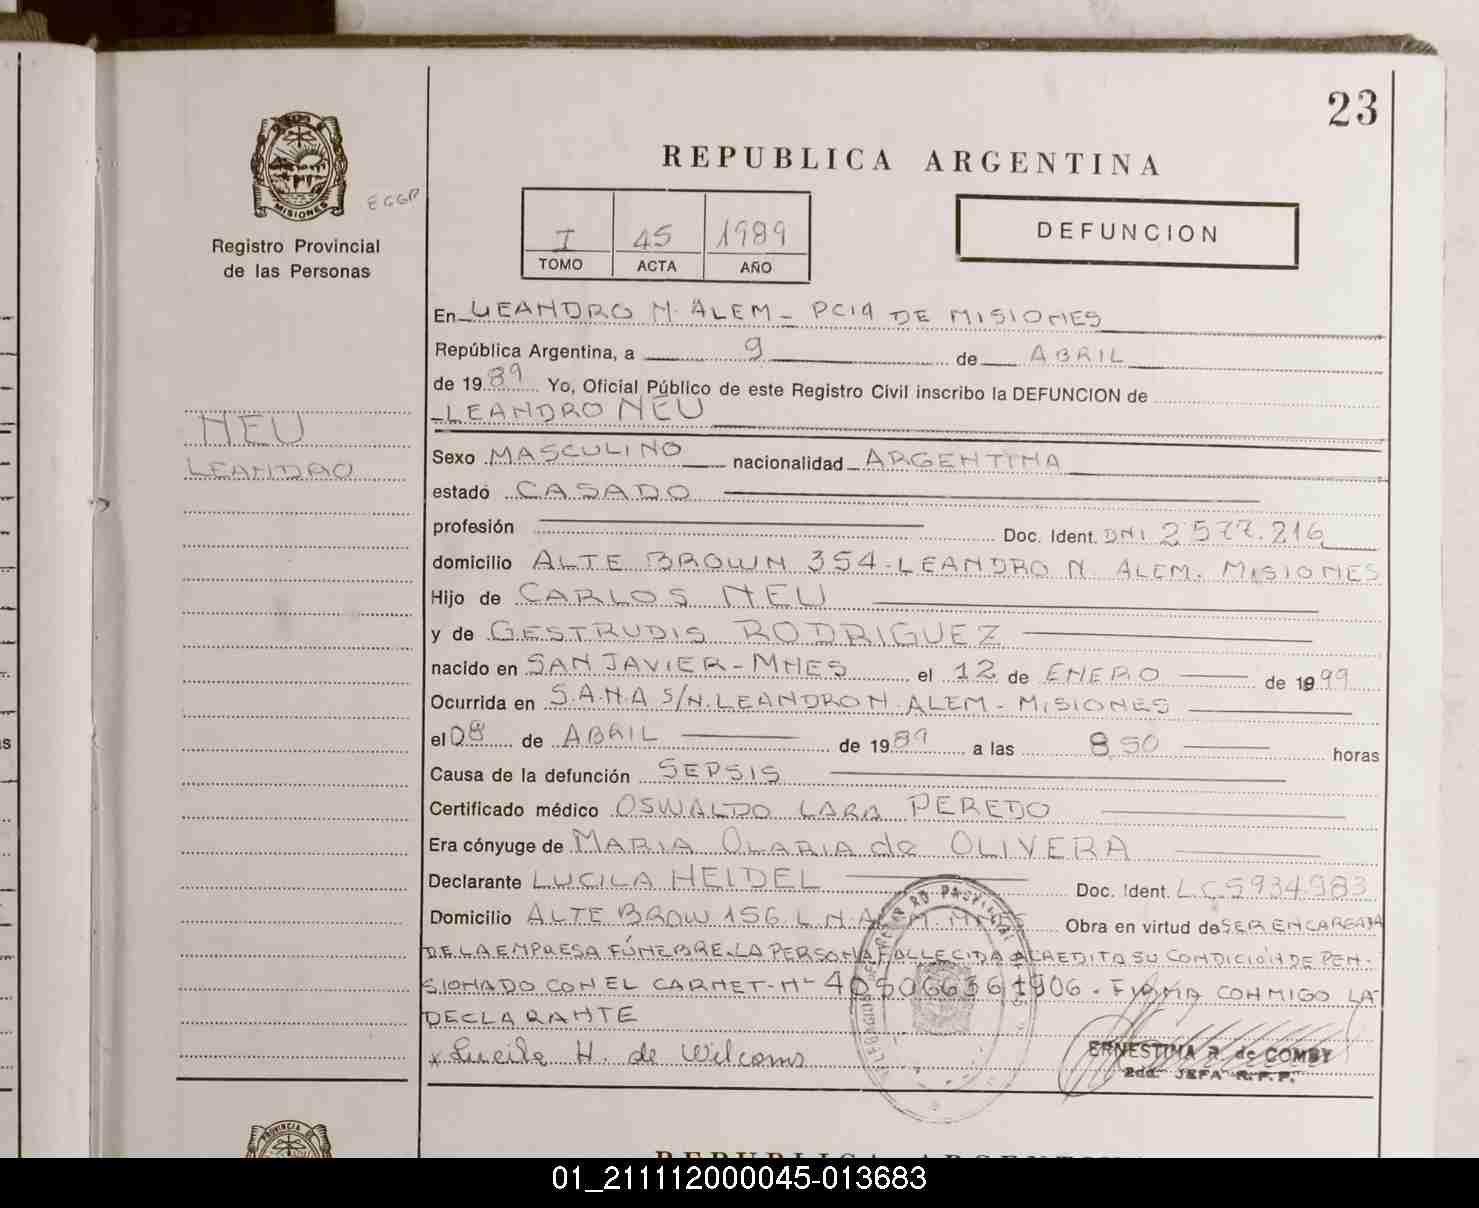 23
REPUBLICA ARGENTINA
MISIONES
Registro Provincial
de las Personas
I 45 1989
TOMO ACTA AÑO
DEFUNCION
En LEANDRO N. ALEM - PCIA DE MISIONES
República Argentina, a 9 de ABRIL
de 1989 Yo, Oficial Público de este Registro Civil inscribo la DEFUNCION de
LEANDRO NEU
NEU
LEANDRO
Sexo MASCULINO nacionalidad ARGENTINA
estado CASADO
profesión Doc. Ident. DNI 2577.216
domicilio ALTE BROWN 354 - LEANDRO N. ALEM. MISIONES
Hijo de CARLOS NEU
y de GESTRUDIS RODRIGUEZ
nacido en SAN JAVIER - MNES el 12 de ENERO de 1999
Ocurrida en S.A.N.A S/N. LEANDRO N. ALEM - MISIONES
el 08 de ABRIL de 1989 a las 8,50 horas
Causa de la defunción SEPSIS
Certificado médico OSWALDO LARA PEREDO
Era cónyuge de MARIA OLARIA de OLIVERA
Declarante LUCILA HEIDEL Doc. Ident. L.C. 5934983
Domicilio ALTE BROW 156 L.N.A. MNES Obra en virtud de SER ENCARGADA
DE LA EMPRESA FÚNEBRE. LA PERSONA FALLECIDA ACREDITO SU CONDICIÓN DE PEN-
SIONADO CON EL CARNET - Nº FIRMA CONMIGO LA
DECLARANTE
x Lucila H. de
ERNESTINA R. de COMBY
2da. JEFA R.P.P.
PROVINCIA DE
REPUBLICA ARGENTINA
01_211112000045-013683